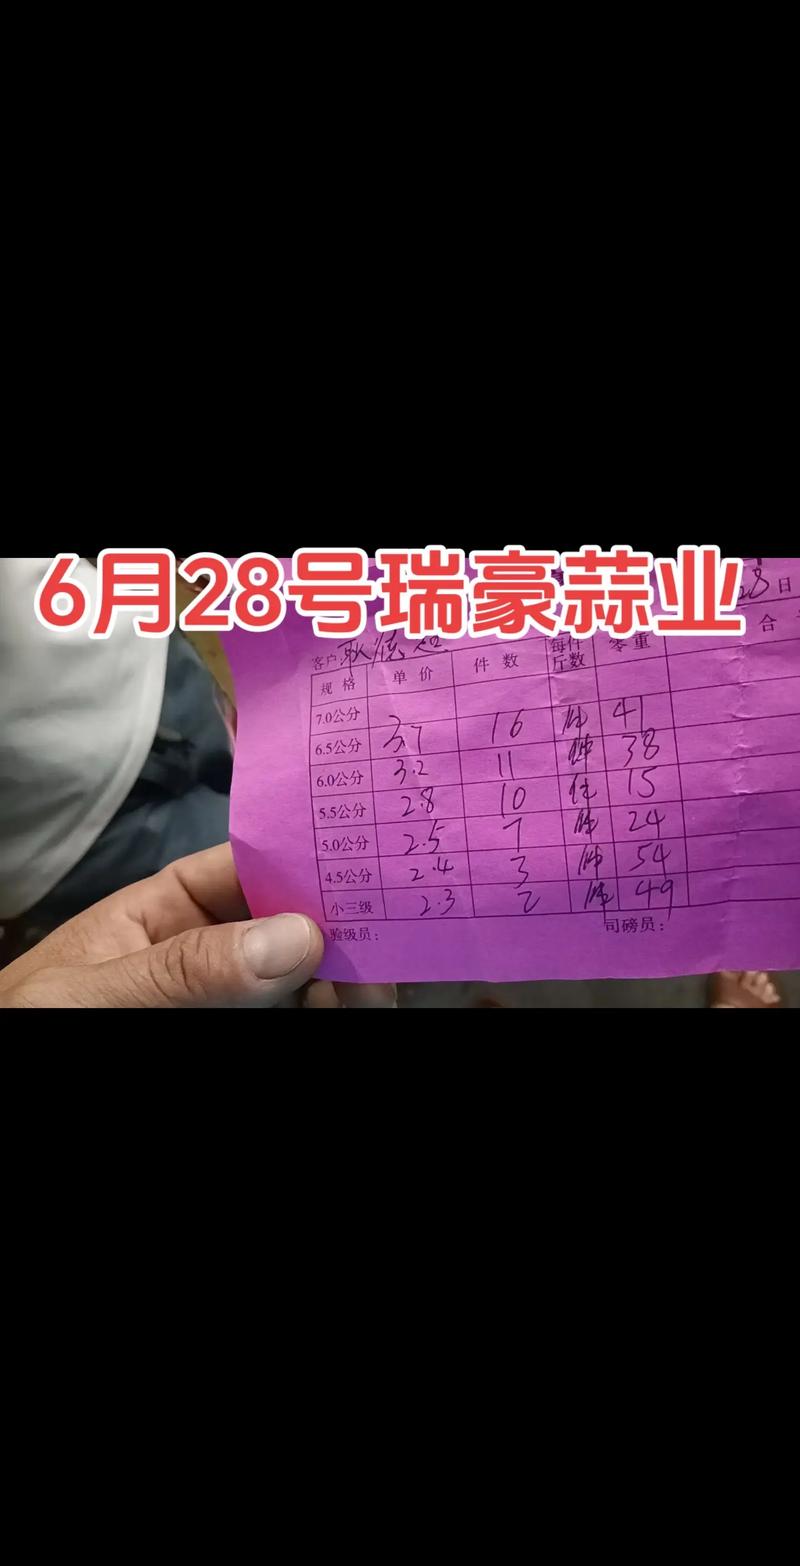 6月28号瑞豪蒜业
28日
客户
规格 单价 件数 每件斤数 零重 合
7.0公分
6.5公分 3.7 16 件 41
6.0公分 3.2 11 件 38
5.5公分 2.8 10 件 15
5.0公分 2.5 7 件 24
4.5公分 2.4 3 件 54
小三级 2.3 2 件 49
验级员： 司磅员：